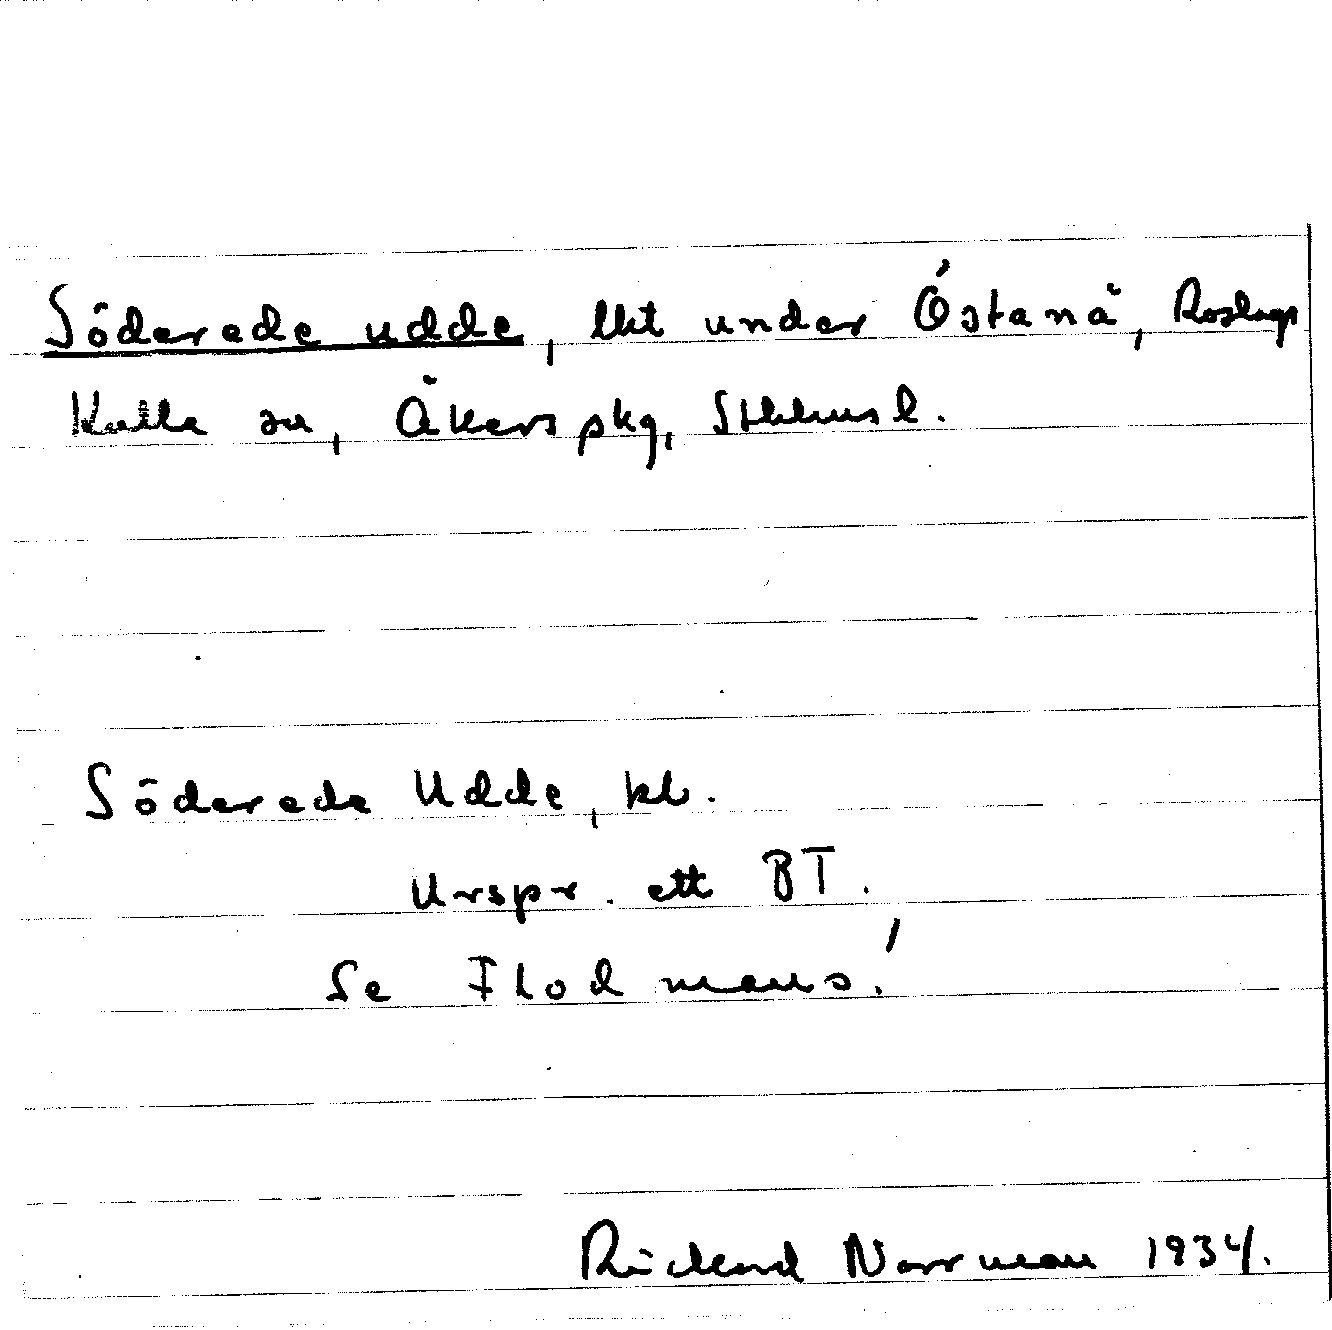 Söderede udde, lht under Östanå, Roslags
Kulla sn, Åkers pkg, Sthlms l.
Söderede Udde, kl.
Urspr. ett BT.
Se Flodmans!
Rickard Norrman 1934.